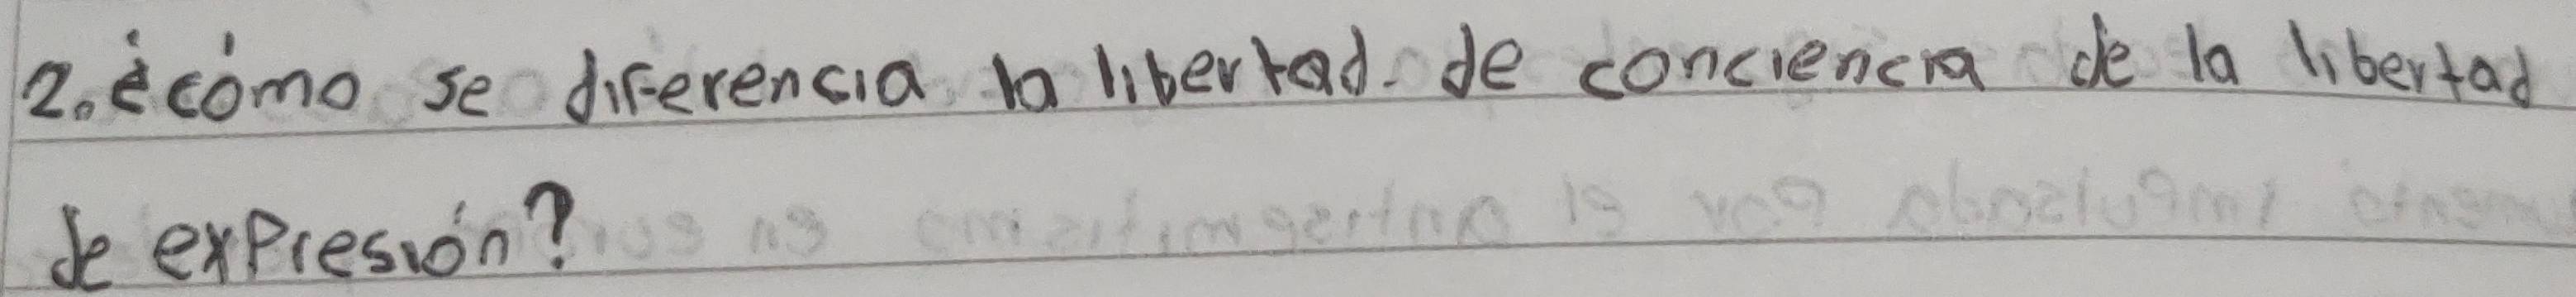 2. ¿cómo se diferencia la libertad de conciencia de la libertad
de expresión?